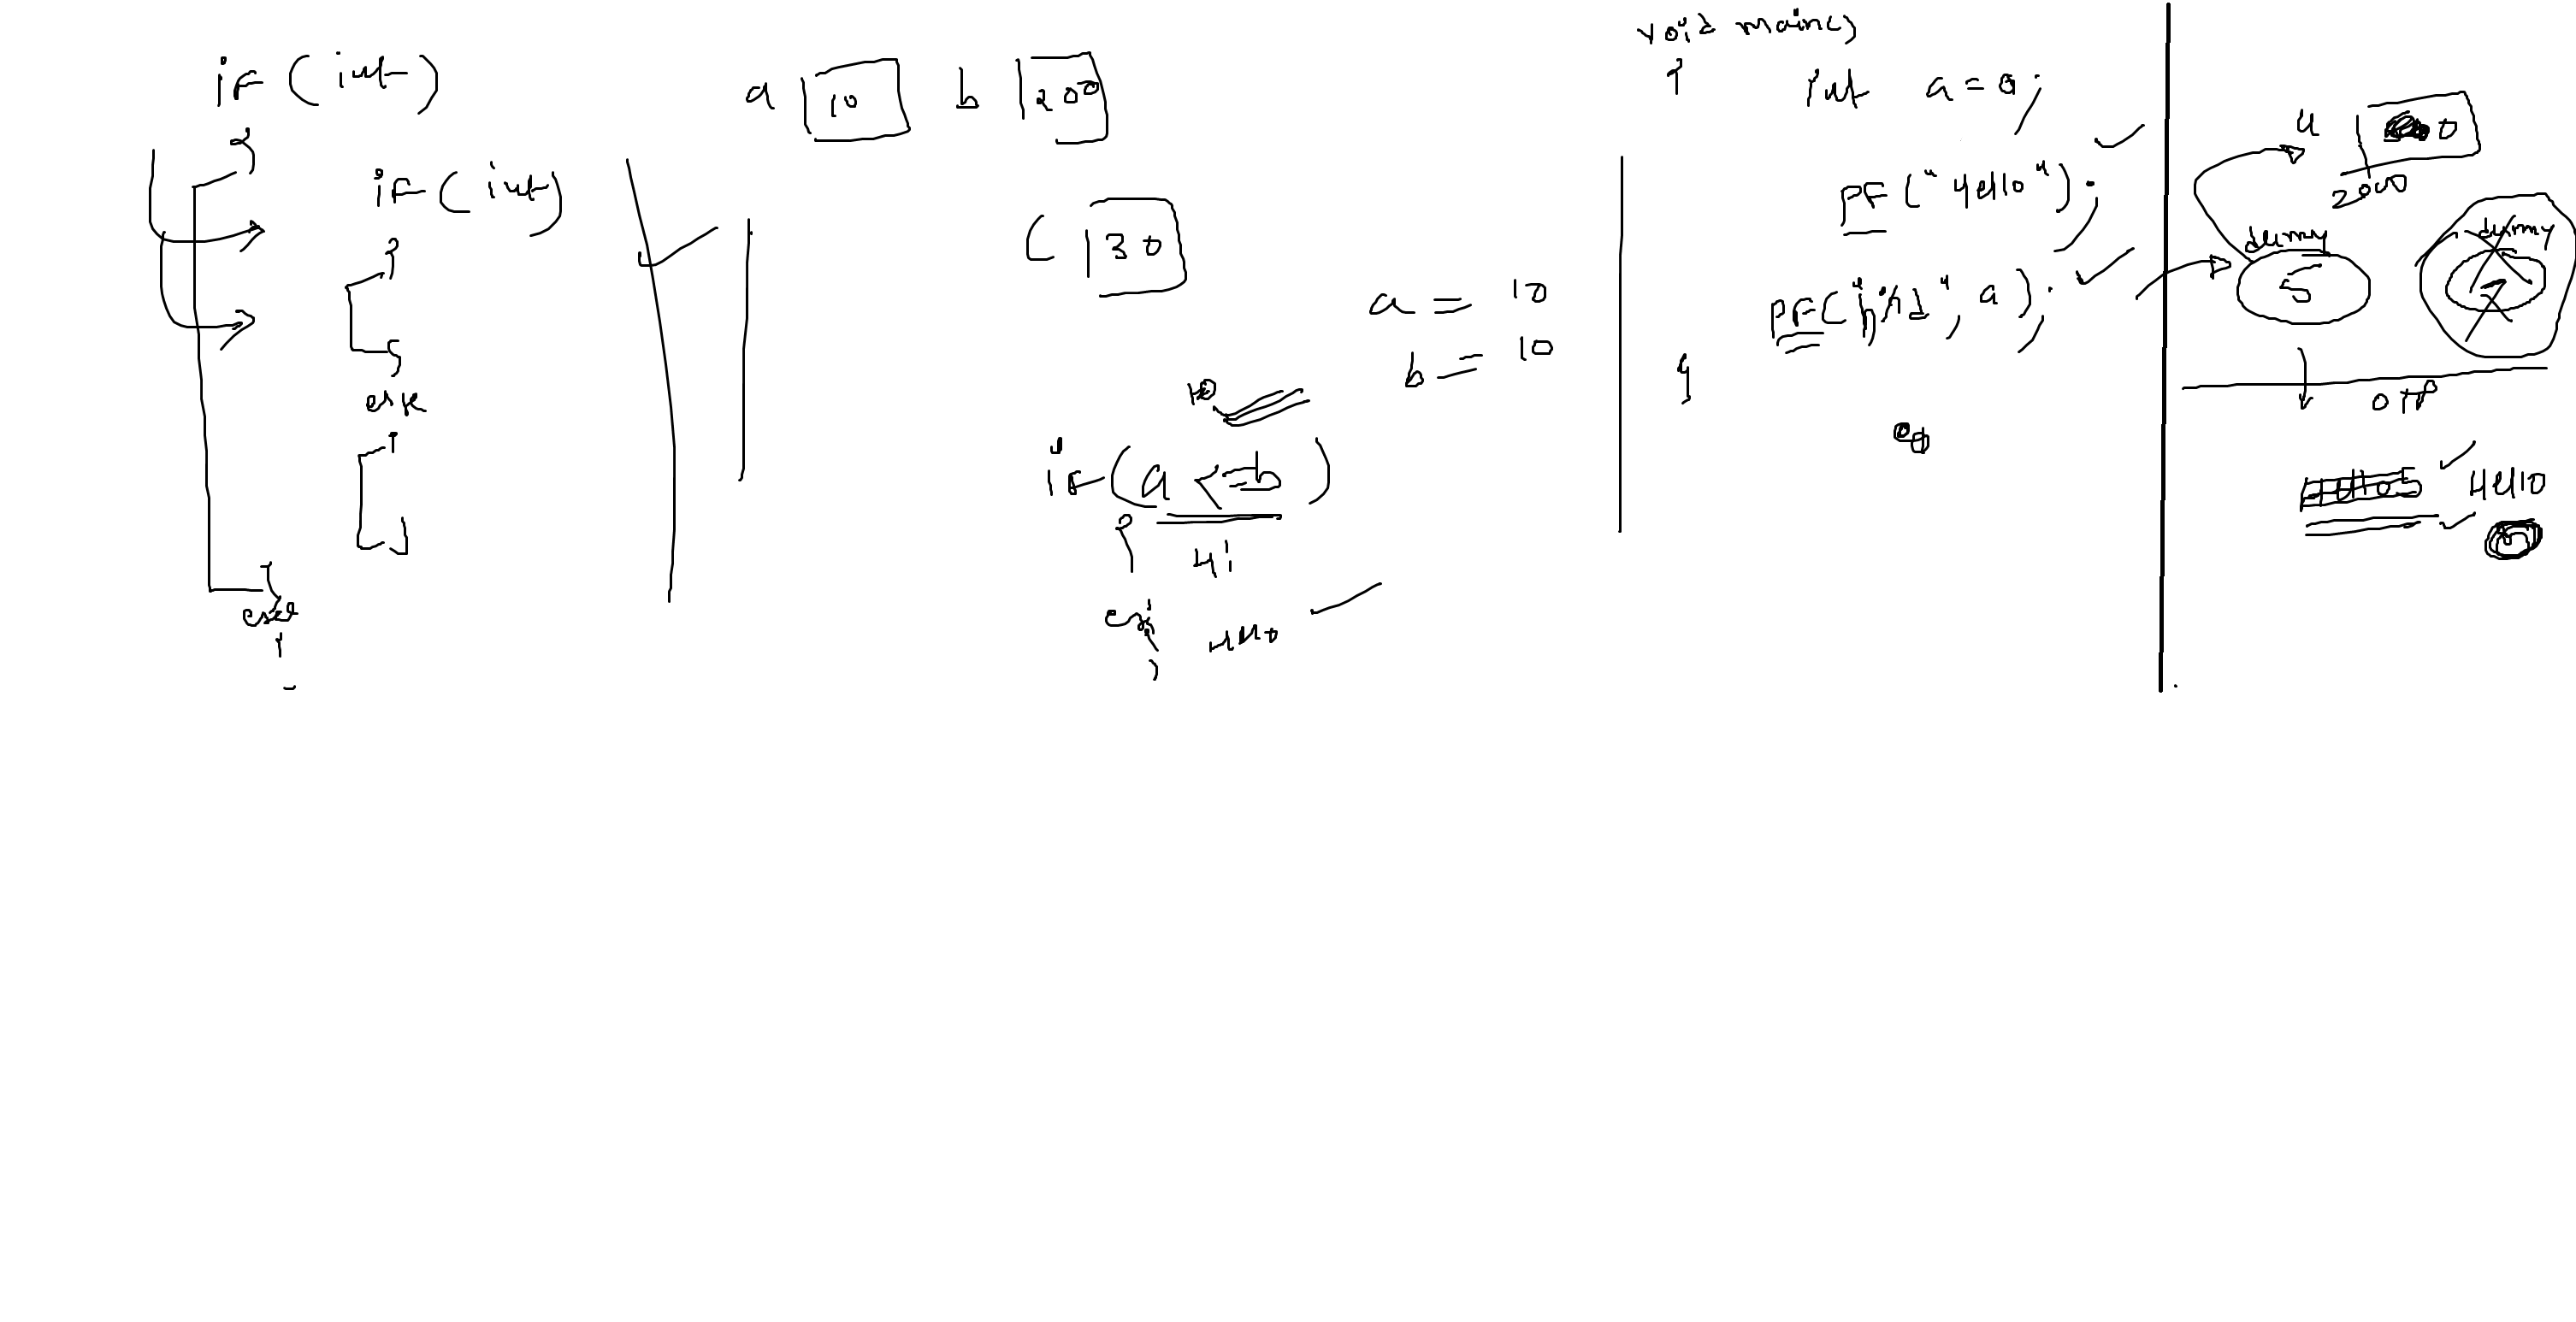 if (int)
{
if (int)
{
}
else
{
}
}
else
{
a 10 b 200
C 30
a = 10
b = 10
10
if (a <= b)
{
Hi
Hello
void main()
{
int a = 0;
PF ("Hello");
PF ("\n%d", a);
}
a 0
2000
dummy dummy
5
O/P
Hello5 Hello